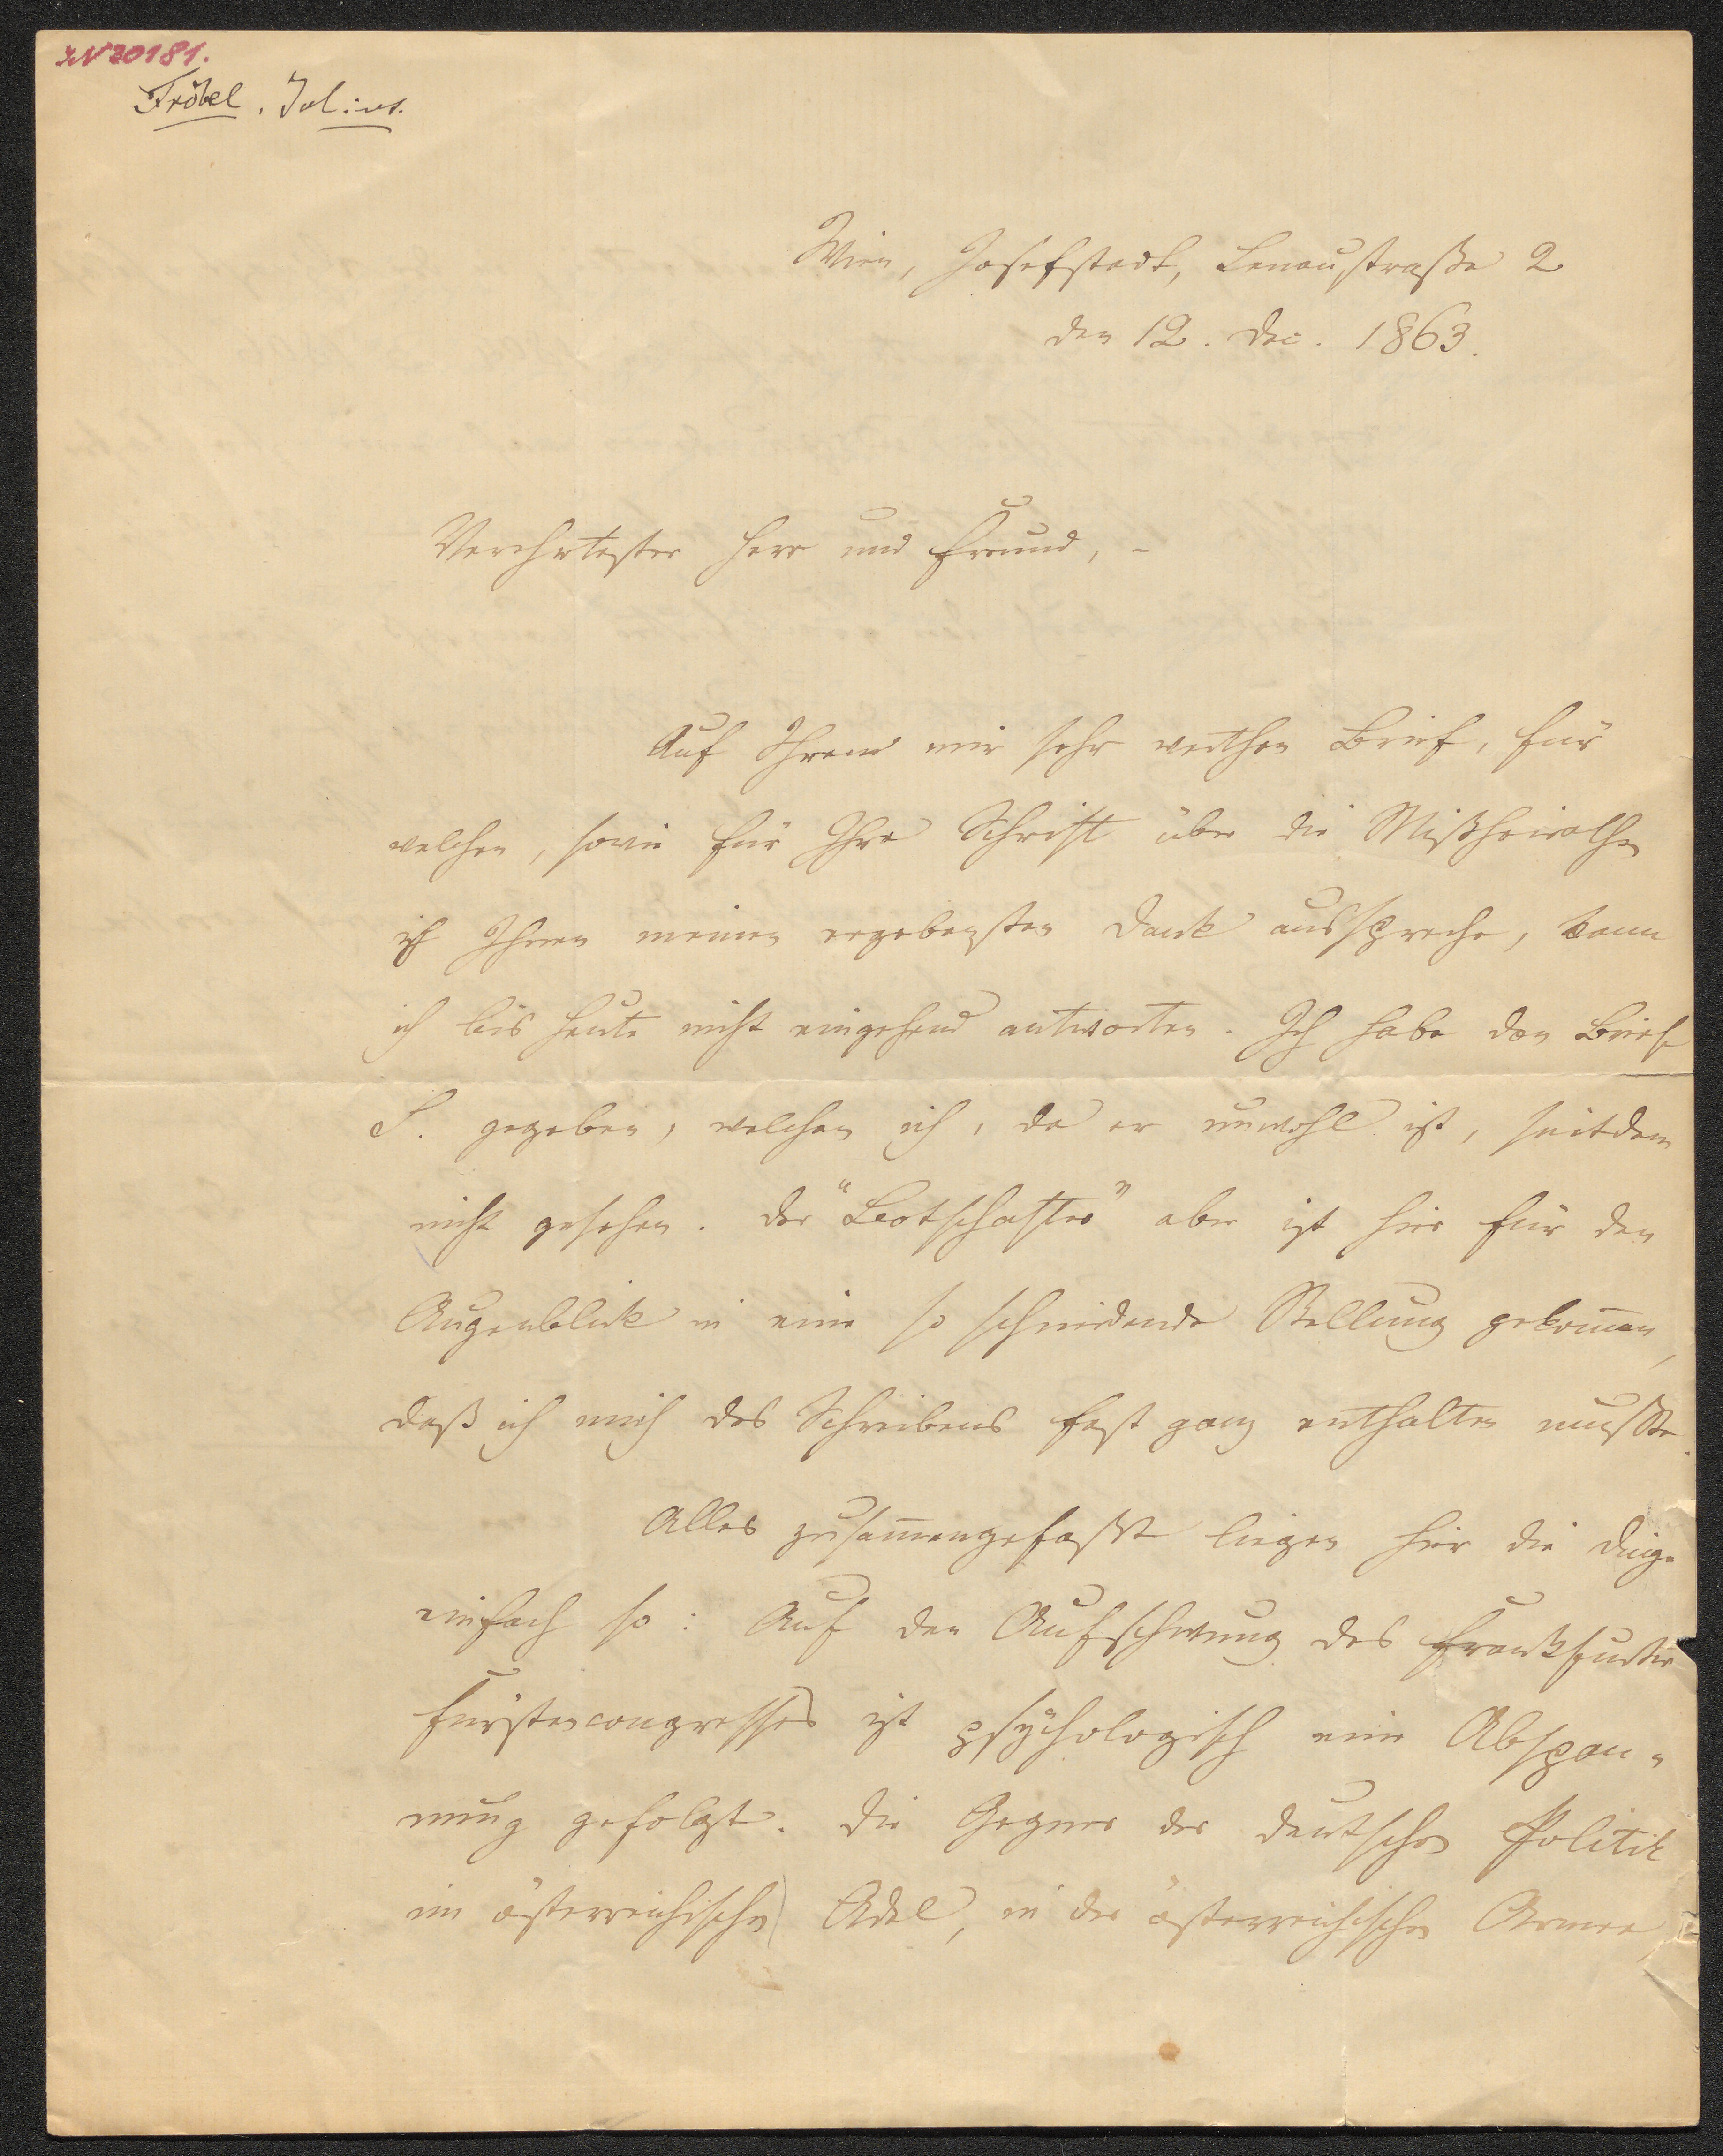 IN 30181.
Fröbel, Julius.
Wien, Josefstadt, Lenaustraße 2
den 12. Dec. 1863.
Verehrtester Herr und Freund, –
Auf Ihren mir sehr werthen Brief, für
welchen, sowie für Ihre Schrift über die Mißheirathen
ich Ihnen meinen ergebensten Dank ausspreche, kann
ich bis heute nicht eingehend antworten. Ich habe den Brief
S. gegeben, welchen ich, da er unwohl ist, seitdem
nicht gesehen. Der "Botschafter" aber ist hier für den
Augenblick in eine so schneidende Stellung gekommen,
daß ich mich des Schreibens fast ganz enthalten mußte.
Alles zusammengefaßt liegen hier die Dinge
einfach so: Auf den Aufschwung des Frankfurter
Fürstencongresses ist psychologisch eine Abspan-
nung gefolgt. Die Gegner der deutschen Politik
im österreichischen Adel, in der österreichischen Armee,